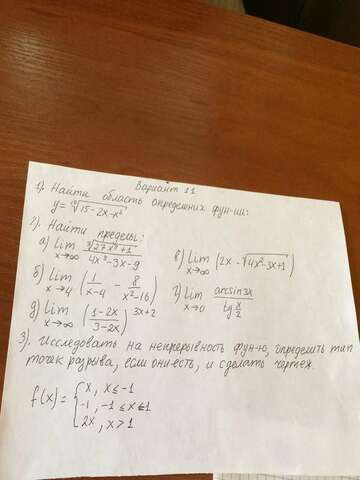 Вариант 11
1). Найти область определения фун-ии:
y = \sqrt[10]{15-2x-x²}
2). Найти пределы:
а) lim x→∞ \frac{\sqrt[3]{27x⁹+1}}{4x³-3x-9} в) lim x→∞ (2x - \sqrt{4x²-3x+1})
б) lim x→4 (\frac{1}{x-4} - \frac{8}{x²-16}) г) lim x→0 \frac{arcsin3x}{tg \frac{x}{2}}
д) lim x→∞ (\frac{1-2x}{3-2x})^{3x+2}
3). Исследовать на непрерывность фун-ю, определить тип
точек разрыва, если они есть, и сделать чертеж.
f(x) = { x, x ≤ -1
-1, -1 ≤ x ≤ 1
2x, x > 1